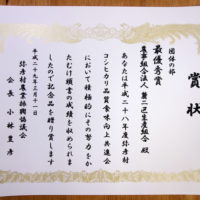 賞状
団体の部
最優秀賞
農事組合法人 第二四生産組合 殿
あなたは平成二十八年度弥彦村
コシヒカリ品質食味向上共進会
において積極的にその努力をか
たむけ頭書の成績を収められま
したので記念品を贈り賞します
平成二十九年三月十一日
弥彦村農業振興協議会
会長 小林豊彦